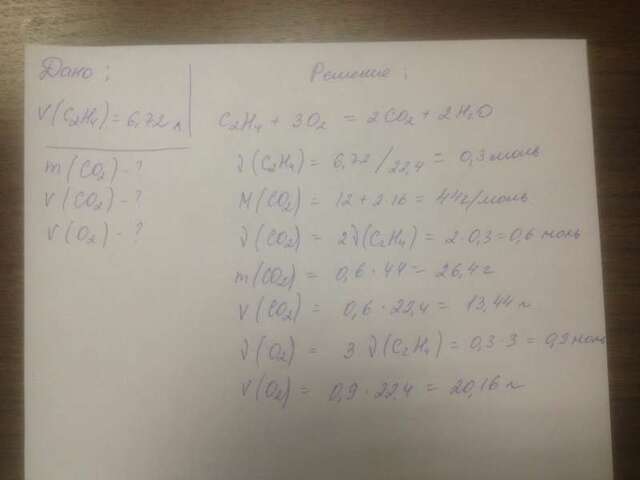 Дано :
V(C₂H₄) = 6,72 л
m(CO₂) - ?
V(CO₂) - ?
V(O₂) - ?
Решение :
C₂H₄ + 3O₂ = 2CO₂ + 2H₂O
ν(C₂H₄) = 6,72/22,4 = 0,3 моль
M(CO₂) = 12 + 2·16 = 44 г/моль
ν(CO₂) = 2ν(C₂H₄) = 2·0,3 = 0,6 моль
m(CO₂) = 0,6 · 44 = 26,4 г
V(CO₂) = 0,6 · 22,4 = 13,44 л
ν(O₂) = 3 ν(C₂H₄) = 0,3·3 = 0,9 моль
V(O₂) = 0,9 · 22,4 = 20,16 л